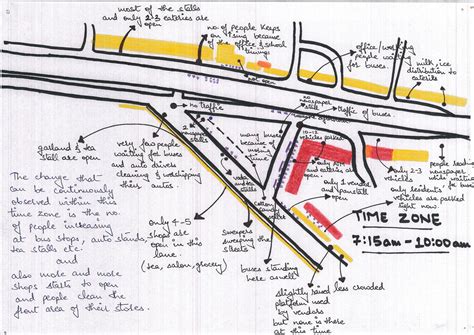 most of the stalls
and only 2-3 eateries are
open
no. of people keeps
on rising because
of the office & school
timings
not open
office/working
people waiting
for buses.
milk, ice
distribution to
no traffic
no
newspaper
stall
traffic of buses
newspaper
stalls
garland & tea
stall are
open
very few people
waiting for buses
and auto drivers
cleaning & worshipping
their autos.
many buses
because of
timing
10-12
vehicles parked
only ATM
and eateries
are open
only 2 vendors
and panistall
only 2-3
vehicles
people reading
newspaper
while waiting
for bus
only residents'
vehicles are parked
right now
The change that
can be continuously
observed within this
time zone is the no.
of people increasing
at bus stops, auto stands,
tea stalls etc.
and
also more and more
shops starts to open
and people clean the
front area of their stores.
only 4-5
shops are
open in this
lane.
(tea, salon, grocery)
tea
stalls
Sweepers
sweeping the
streets
buses standing
here as well
TIME ZONE
7:15am - 10:00am
slightly based less crowded
platform used
by vendors
but none is there
at this time